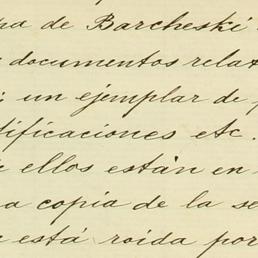 pa de Barcheski
documentos relat
un ejemplar de
tificaciones etc.
ellos están en
a copia de la se
está roida por